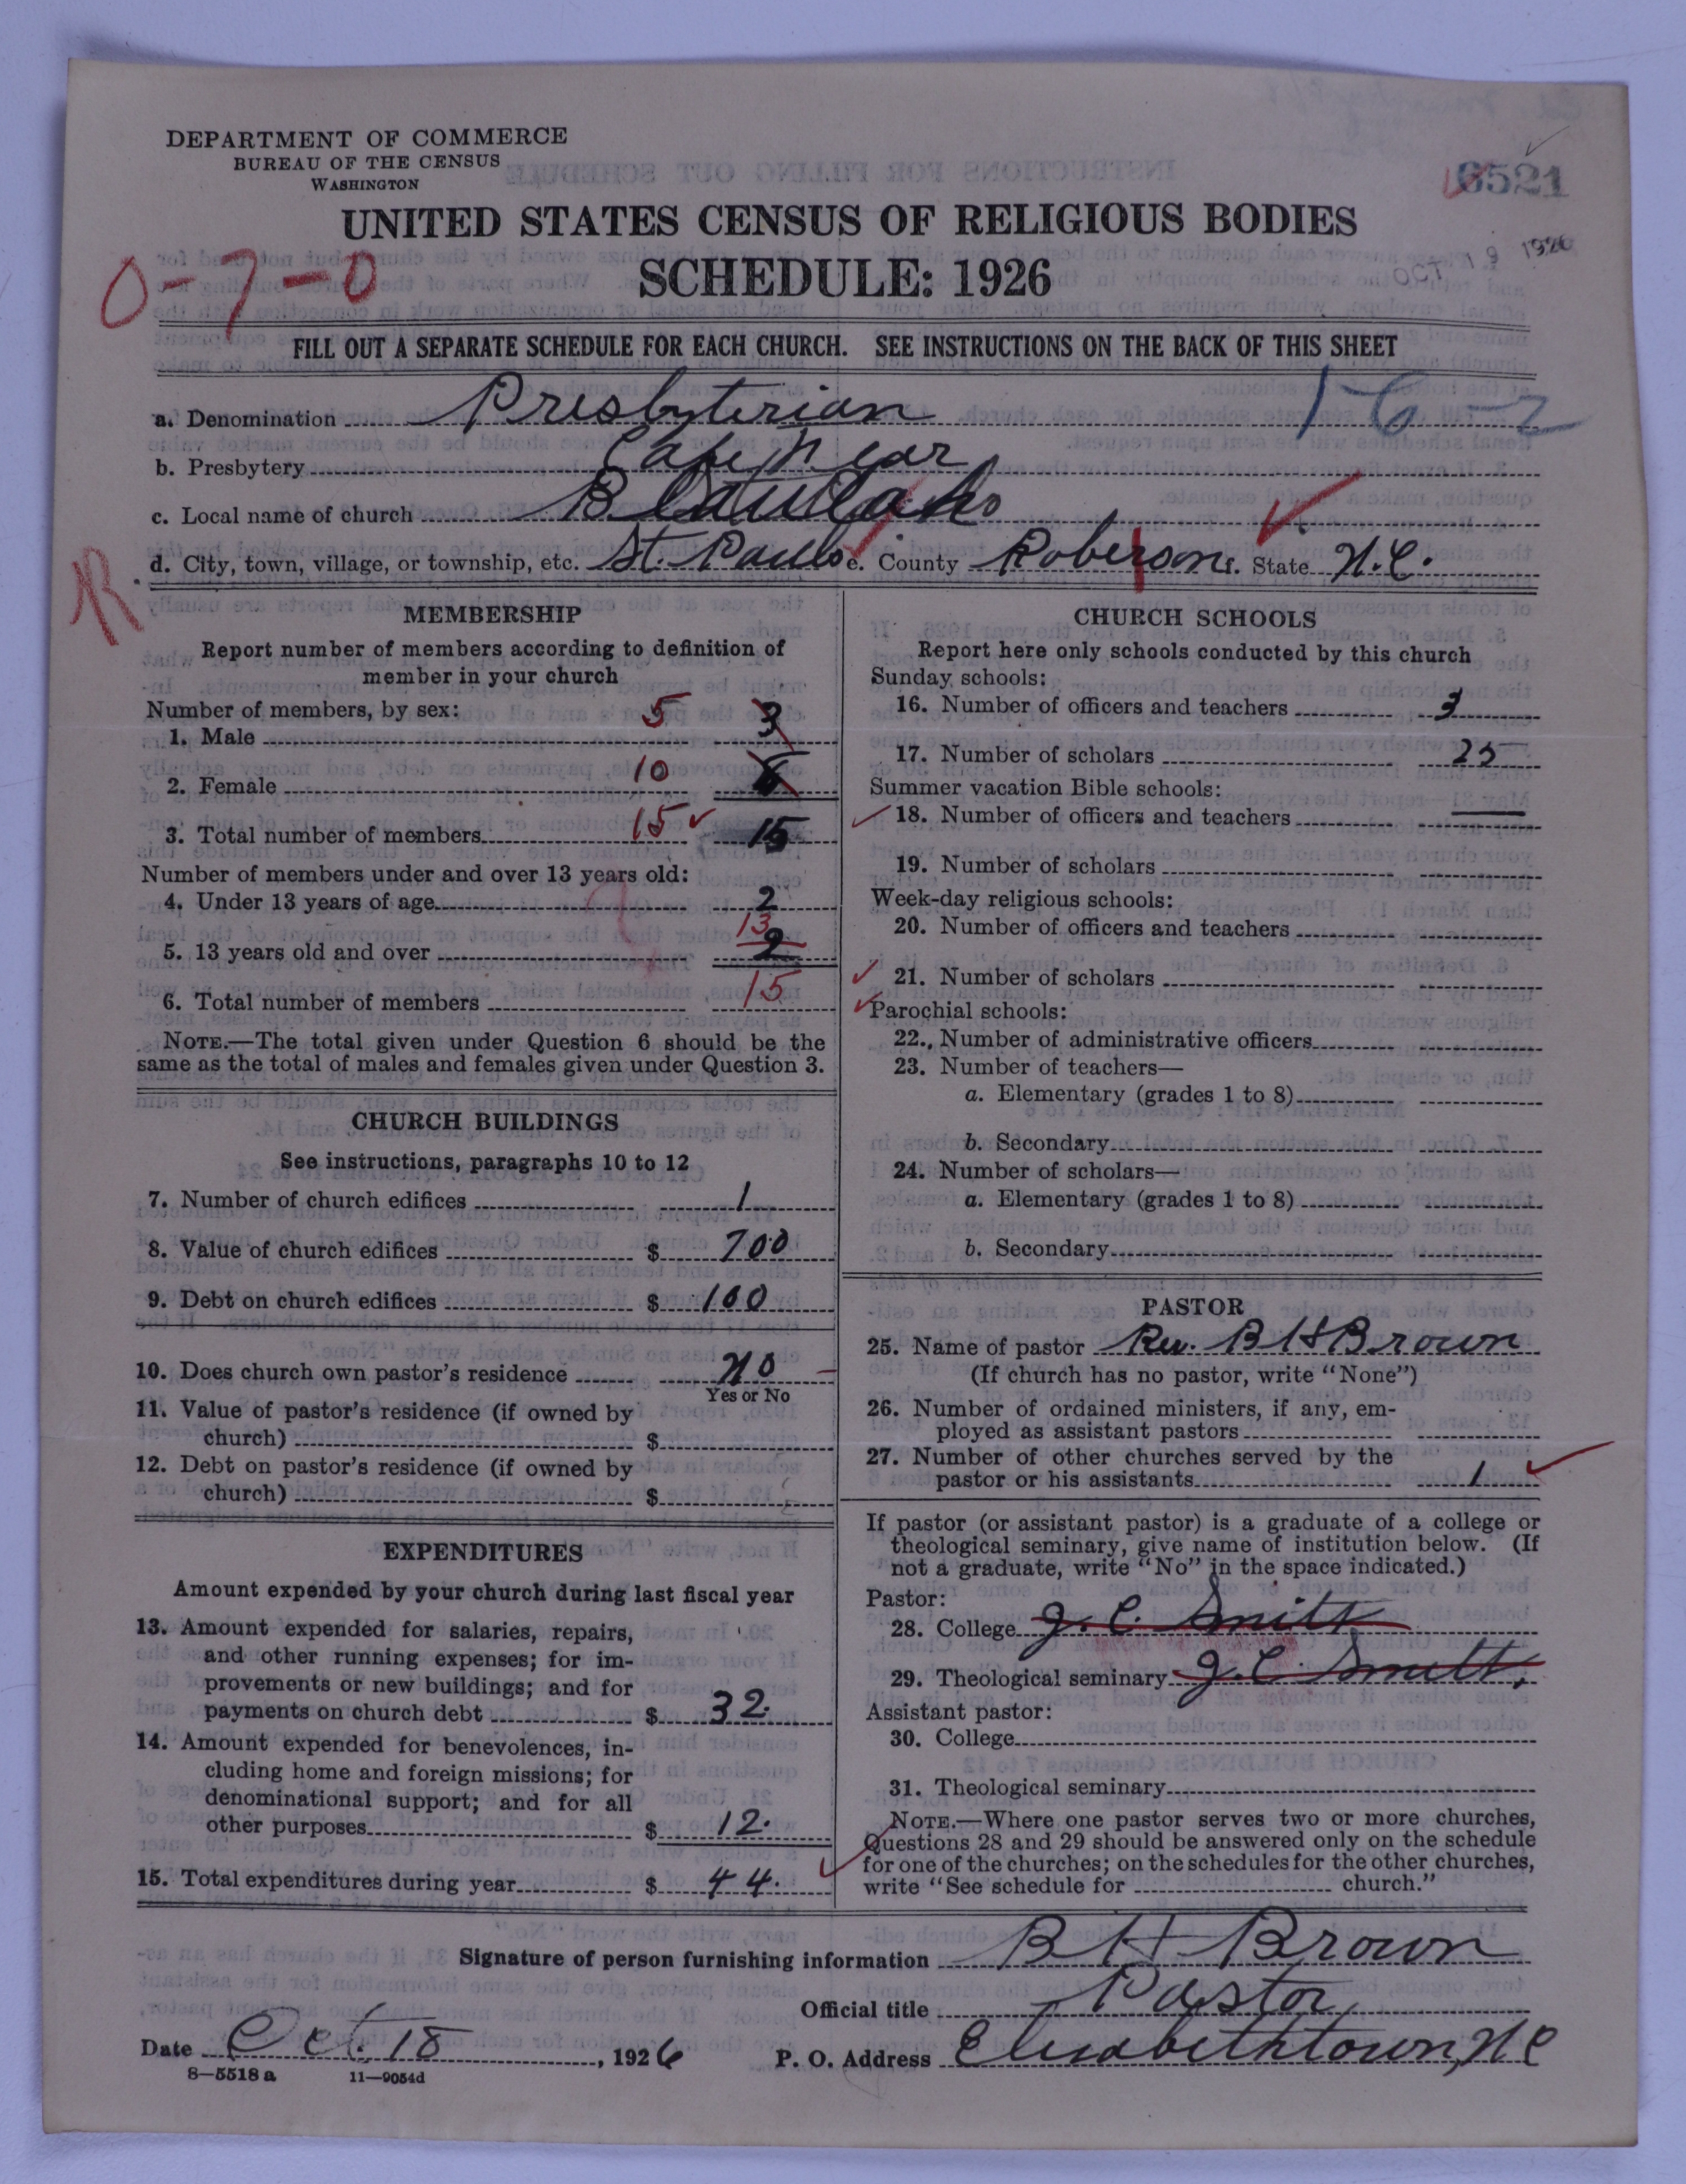 DEPARTMENT OF COMMERCE
BUREAU OF THE CENSUS
WASHINGTON
6521
UNITED STATES CENSUS OF RELIGIOUS BODIES
OCT 19 1926
0-7-0
SCHEDULE: 1926
FILL OUT A SEPARATE SCHEDULE FOR EACH CHURCH. SEE INSTRUCTIONS ON THE BACK OF THIS SHEET
a. Denomination Presbyterian
16-2
b. Presbytery Cape Fear
c. Local name of church
d. City, town, village, or township, etc. St. Pauls e. County Roberson f. State N.C.
R
MEMBERSHIP
Report number of members according to definition of
member in your church
Number of members, by sex:
1. Male 5 3
2. Female 10
3. Total number of members 15 15
Number of members under and over 13 years old:
4. Under 13 years of age 2
5. 13 years old and over 13 2
6. Total number of members 15
NOTE.—The total given under Question 6 should be the
same as the total of males and females given under Question 3.
CHURCH BUILDINGS
See instructions, paragraphs 10 to 12
7. Number of church edifices 1
8. Value of church edifices $ 700
9. Debt on church edifices $ 100
10. Does church own pastor's residence No
Yes or No
11. Value of pastor's residence (if owned by
church) $
12. Debt on pastor's residence (if owned by
church) $
EXPENDITURES
Amount expended by your church during last fiscal year
13. Amount expended for salaries, repairs,
and other running expenses; for im-
provements or new buildings; and for
payments on church debt $ 32.
14. Amount expended for benevolences, in-
cluding home and foreign missions; for
denominational support; and for all
other purposes $ 12.
15. Total expenditures during year $ 44.
CHURCH SCHOOLS
Report here only schools conducted by this church
Sunday schools:
16. Number of officers and teachers 3
17. Number of scholars 25
Summer vacation Bible schools:
18. Number of officers and teachers
19. Number of scholars
Week-day religious schools:
20. Number of officers and teachers
21. Number of scholars
Parochial schools:
22. Number of administrative officers
23. Number of teachers—
a. Elementary (grades 1 to 8)
b. Secondary
24. Number of scholars—
a. Elementary (grades 1 to 8)
b. Secondary
PASTOR
25. Name of pastor Rev. B H Brown
(If church has no pastor, write "None")
26. Number of ordained ministers, if any, em-
ployed as assistant pastors
27. Number of other churches served by the
pastor or his assistants 1
If pastor (or assistant pastor) is a graduate of a college or
theological seminary, give name of institution below. (If
not a graduate, write "No" in the space indicated.)
Pastor:
28. College J. C. Smith
29. Theological seminary J. C. Smith
Assistant pastor:
30. College
31. Theological seminary
NOTE.—Where one pastor serves two or more churches,
Questions 28 and 29 should be answered only on the schedule
for one of the churches; on the schedules for the other churches,
write "See schedule for church."
Signature of person furnishing information B H Brown
Official title Pastor
Date Oct. 18, 1926 P. O. Address Elizabethtown, N C
8—5518 a 11—9054d